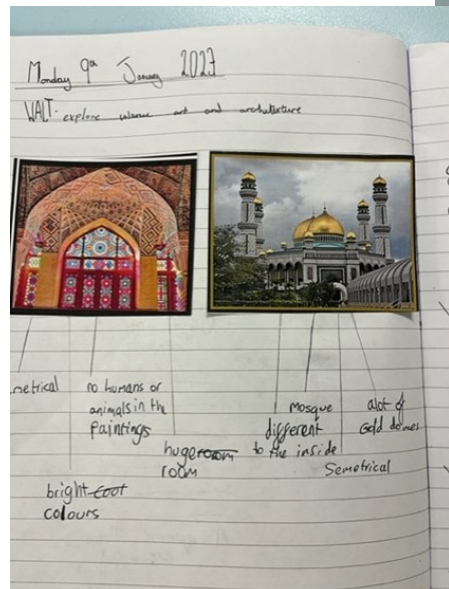 Monday 9th January 2023
WALT: explore islamic art and architecture
metrical
no humans or
animals in the
Paintings
huge room
room
bright
colours
Mosque
different
to the inside
Semetrical
alot of
Gold domes